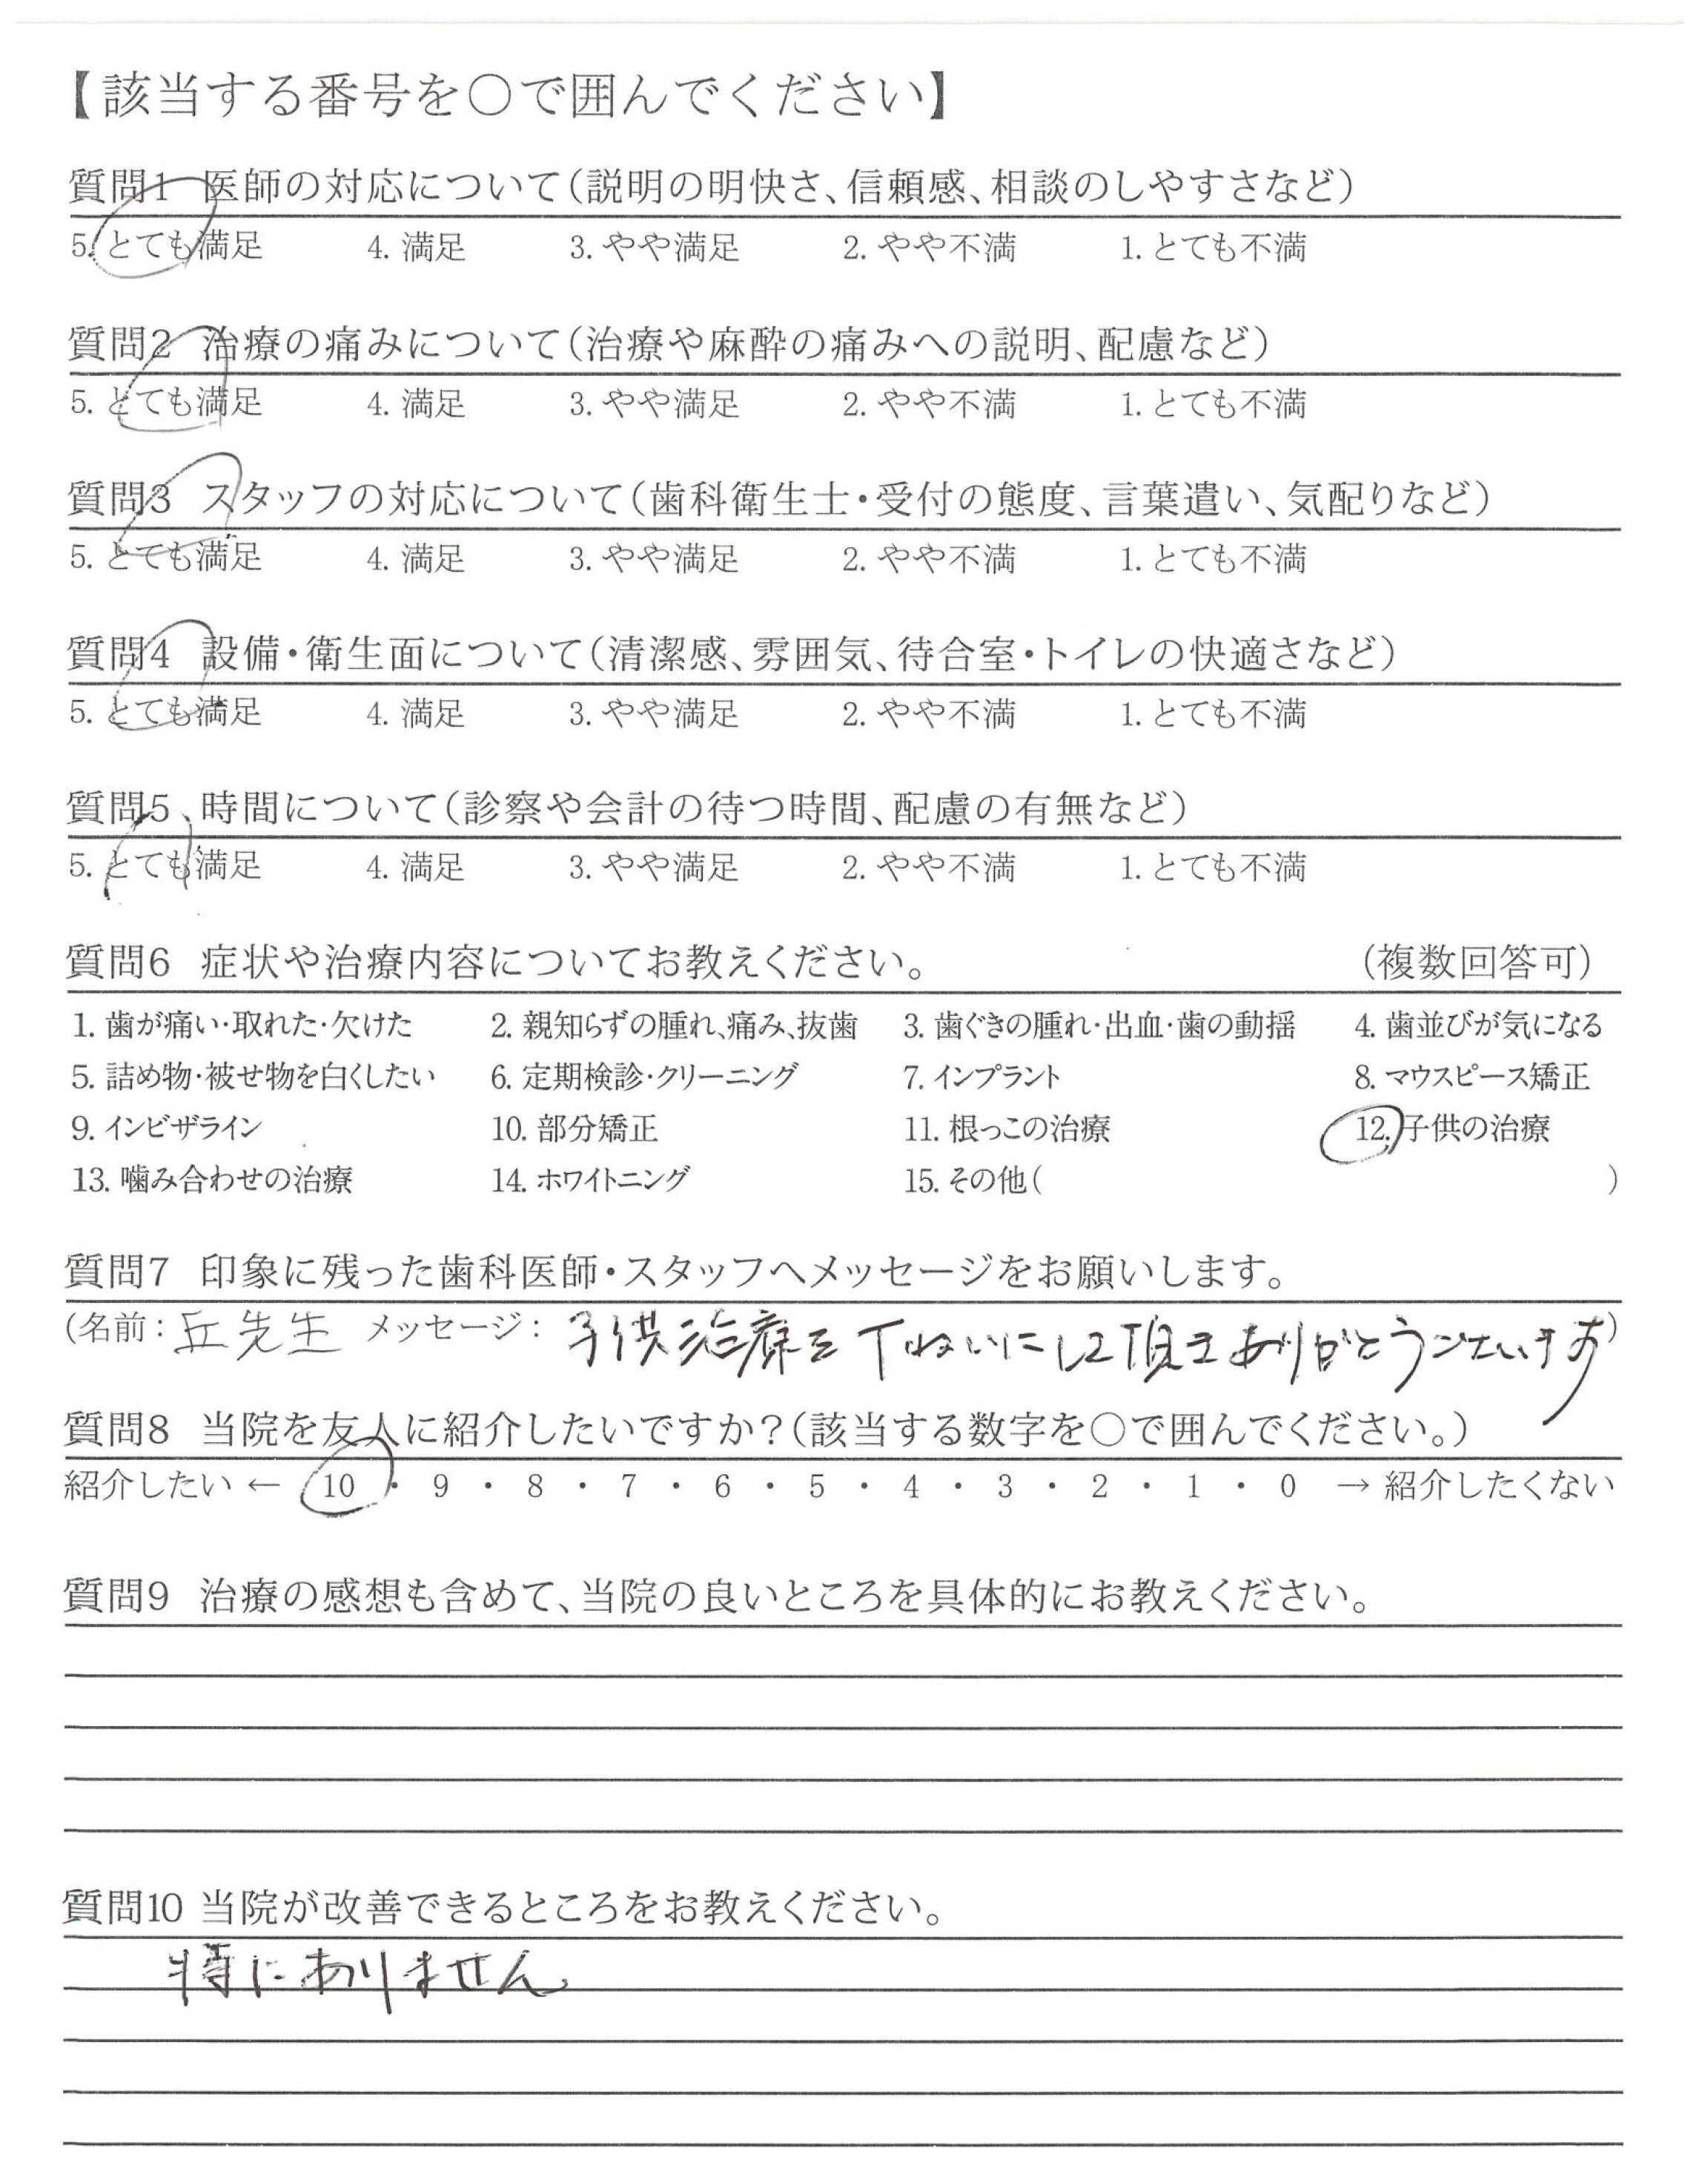 【該当する番号を○で囲んでください】
質問1 医師の対応について（説明の明快さ、信頼感、相談のしやすさなど）
5. とても満足 4. 満足 3. やや満足 2. やや不満 1. とても不満
質問2 治療の痛みについて（治療や麻酔の痛みへの説明、配慮など）
5. とても満足 4. 満足 3. やや満足 2. やや不満 1. とても不満
質問3 スタッフの対応について（歯科衛生士・受付の態度、言葉遣い、気配りなど）
5. とても満足 4. 満足 3. やや満足 2. やや不満 1. とても不満
質問4 設備・衛生面について（清潔感、雰囲気、待合室・トイレの快適さなど）
5. とても満足 4. 満足 3. やや満足 2. やや不満 1. とても不満
質問5 時間について（診察や会計の待つ時間、配慮の有無など）
5. とても満足 4. 満足 3. やや満足 2. やや不満 1. とても不満
質問6 症状や治療内容についてお教えください。 （複数回答可）
1. 歯が痛い・取れた・欠けた 2. 親知らずの腫れ、痛み、抜歯 3. 歯ぐきの腫れ・出血・歯の動揺 4. 歯並びが気になる
5. 詰め物・被せ物を白くしたい 6. 定期検診・クリーニング 7. インプラント 8. マウスピース矯正
9. インビザライン 10. 部分矯正 11. 根っこの治療 12. 子供の治療
13. 噛み合わせの治療 14. ホワイトニング 15. その他（ ）
質問7 印象に残った歯科医師・スタッフへメッセージをお願いします。
（名前：丘先生 メッセージ：子供治療を丁ねいにして頂きありがとうございます）
質問8 当院を友人に紹介したいですか？（該当する数字を○で囲んでください。）
紹介したい ← 10 ・ 9 ・ 8 ・ 7 ・ 6 ・ 5 ・ 4 ・ 3 ・ 2 ・ 1 ・ 0 → 紹介したくない
質問9 治療の感想も含めて、当院の良いところを具体的にお教えください。
質問10 当院が改善できるところをお教えください。
特にありません